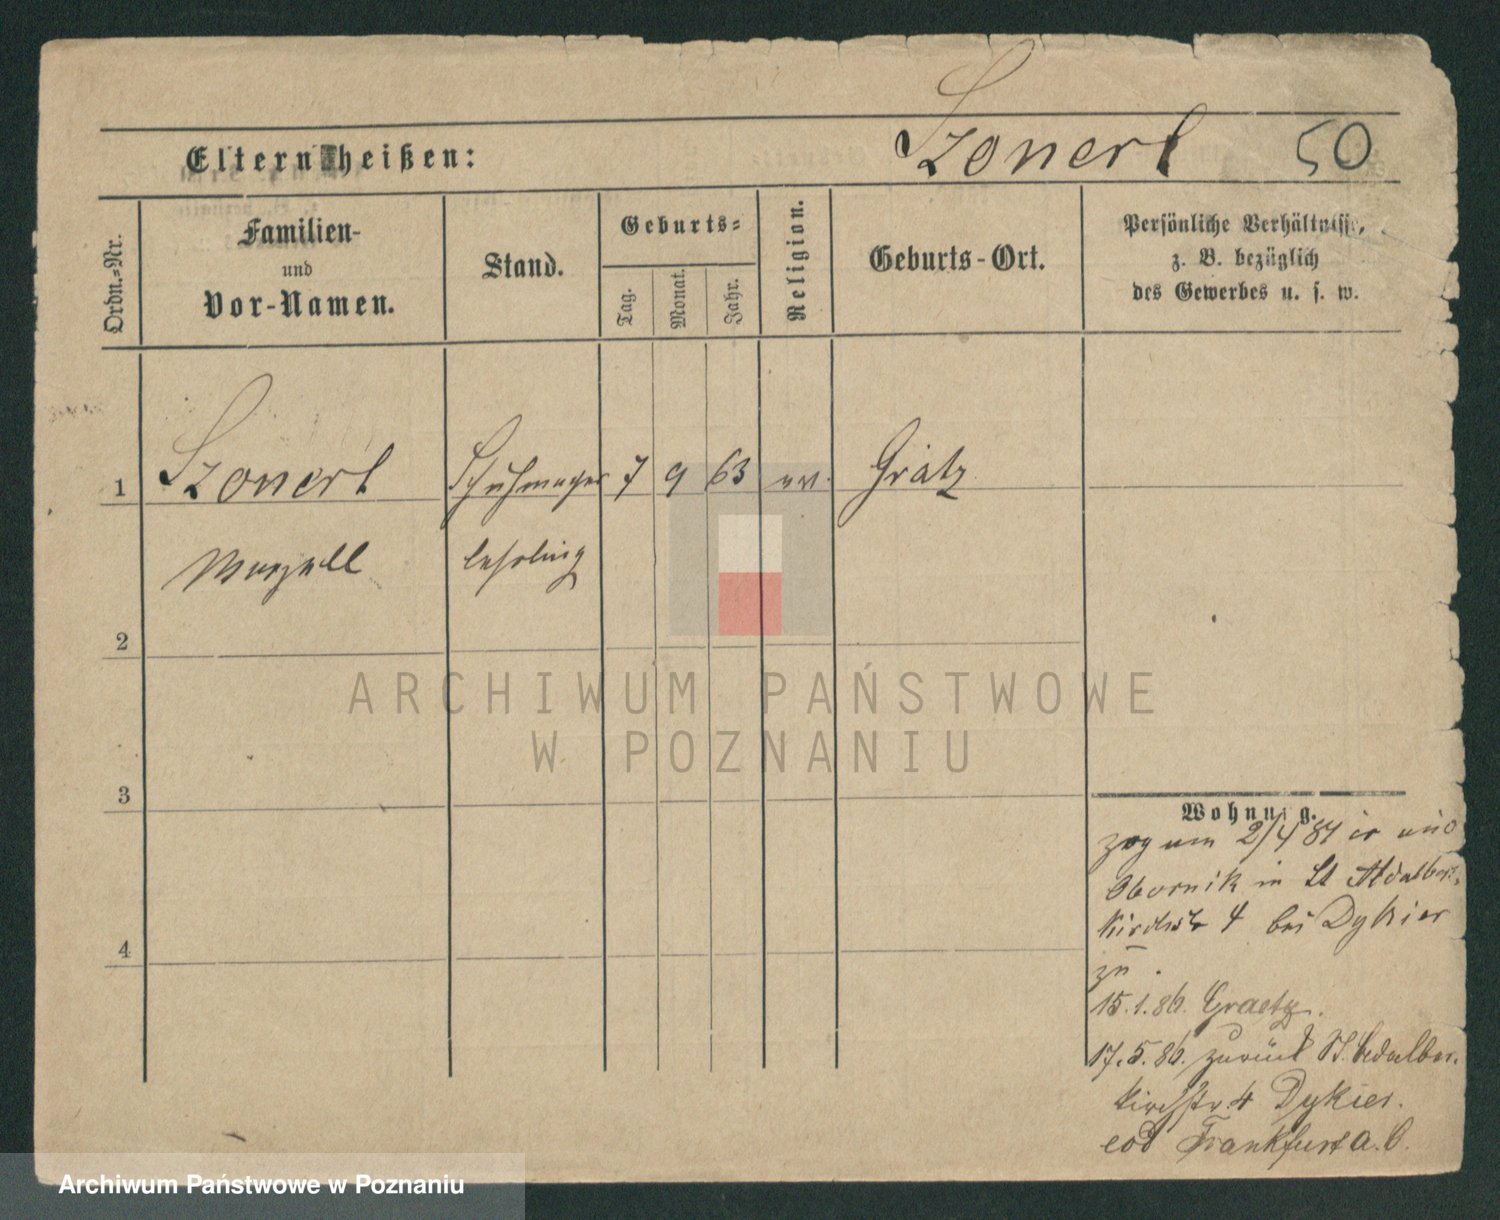 Eltern heißen:
Szonert 50
Ordn.-Nr.
Familien-
und
Vor-Namen.
Stand.
Geburts-
Tag.
Monat.
Jahr.
Religion.
Geburts-Ort.
Persönliche Verhältnisse,
z. B. bezüglich
des Gewerbes u. s. w.
1 Szonert Schuhmacher 7 9 63 ev. Grätz
lehrling
2
3
4
Wohnung.
zog am 2/4 84 er aus
Obornik in St Adalbert-
kirchstr 4 bei Dykier
zu.
15.1.86. Graetz.
17.5.86. zurück St. Adalber.
kirchstr. 4 Dykier.
eod Frankfurt a. O.
ARCHIWUM PAŃSTWOWE
W POZNANIU
Archiwum Państwowe w Poznaniu